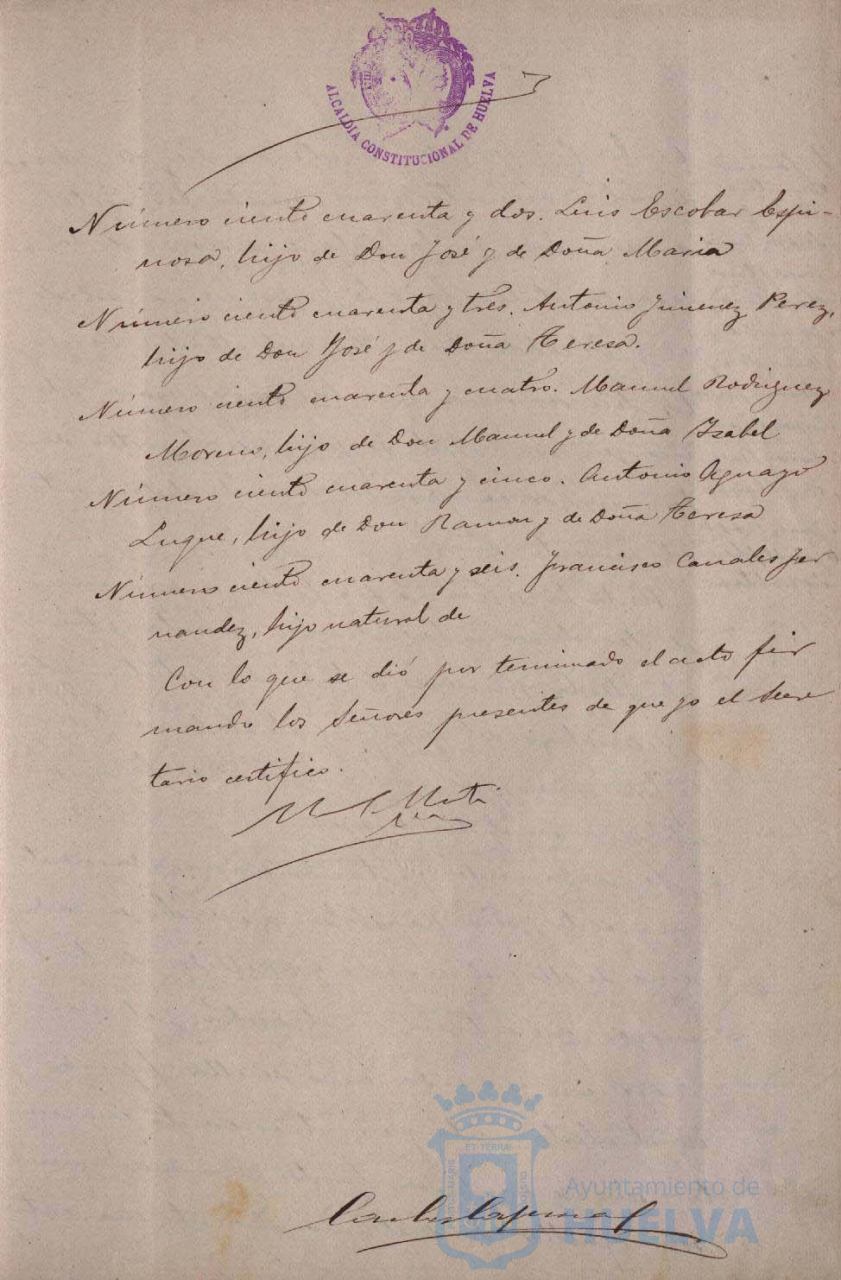 ALCALDIA CONSTITUCIONAL DE HUELVA
Número ciento cuarenta y dos. Luis Escobar Espi-
nosa, hijo de Don José y de Doña Maria
Número ciento cuarenta y tres. Antonio Jimenez Perez,
hijo de Don José y de Doña Teresa.
Número ciento cuarenta y cuatro. Manuel Rodriguez
Moreno, hijo de Don Manuel y de Doña Isabel
Número ciento cuarenta y cinco. Antonio Aguayo
Luque, hijo de Don Ramon y de Doña Teresa
Número ciento cuarenta y seis. Francisco Canales Fer
nandez, hijo natural de
Con lo que se dió por terminado el acto fir
mando los Señores presentes de que yo el Secre
tario certifico.
ET TERRÆ
Ayuntamiento de
HUELVA